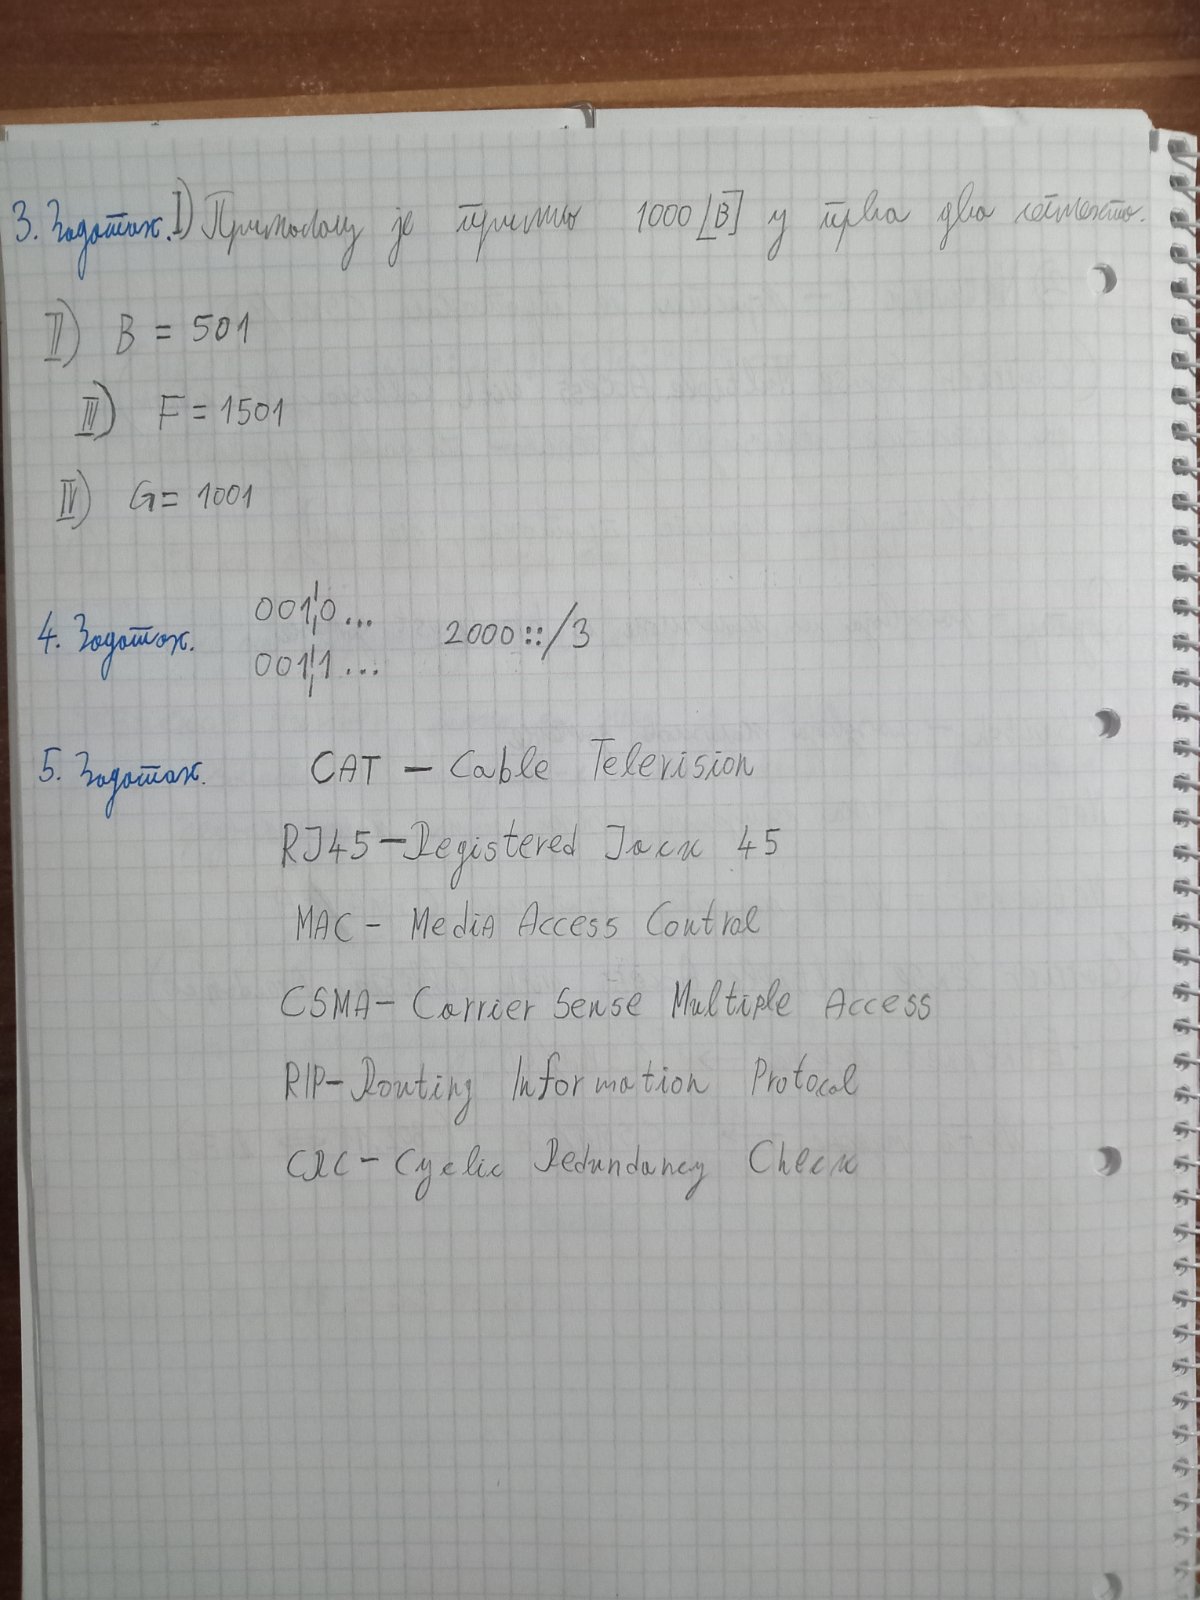 3. Задатак. I) Прималац је примио 1000 [B] у прва два сегмента.
II) B = 501
III) F = 1501
IV) G = 1001
4. Задатак. 001¦0... 2000::/3
001¦1...
5. Задатак. CAT – Cable Television
RJ45 – Registered Jack 45
MAC – Media Access Control
CSMA – Carrier Sense Multiple Access
RIP – Routing Information Protocol
CRC – Cyclic Redundancy Check